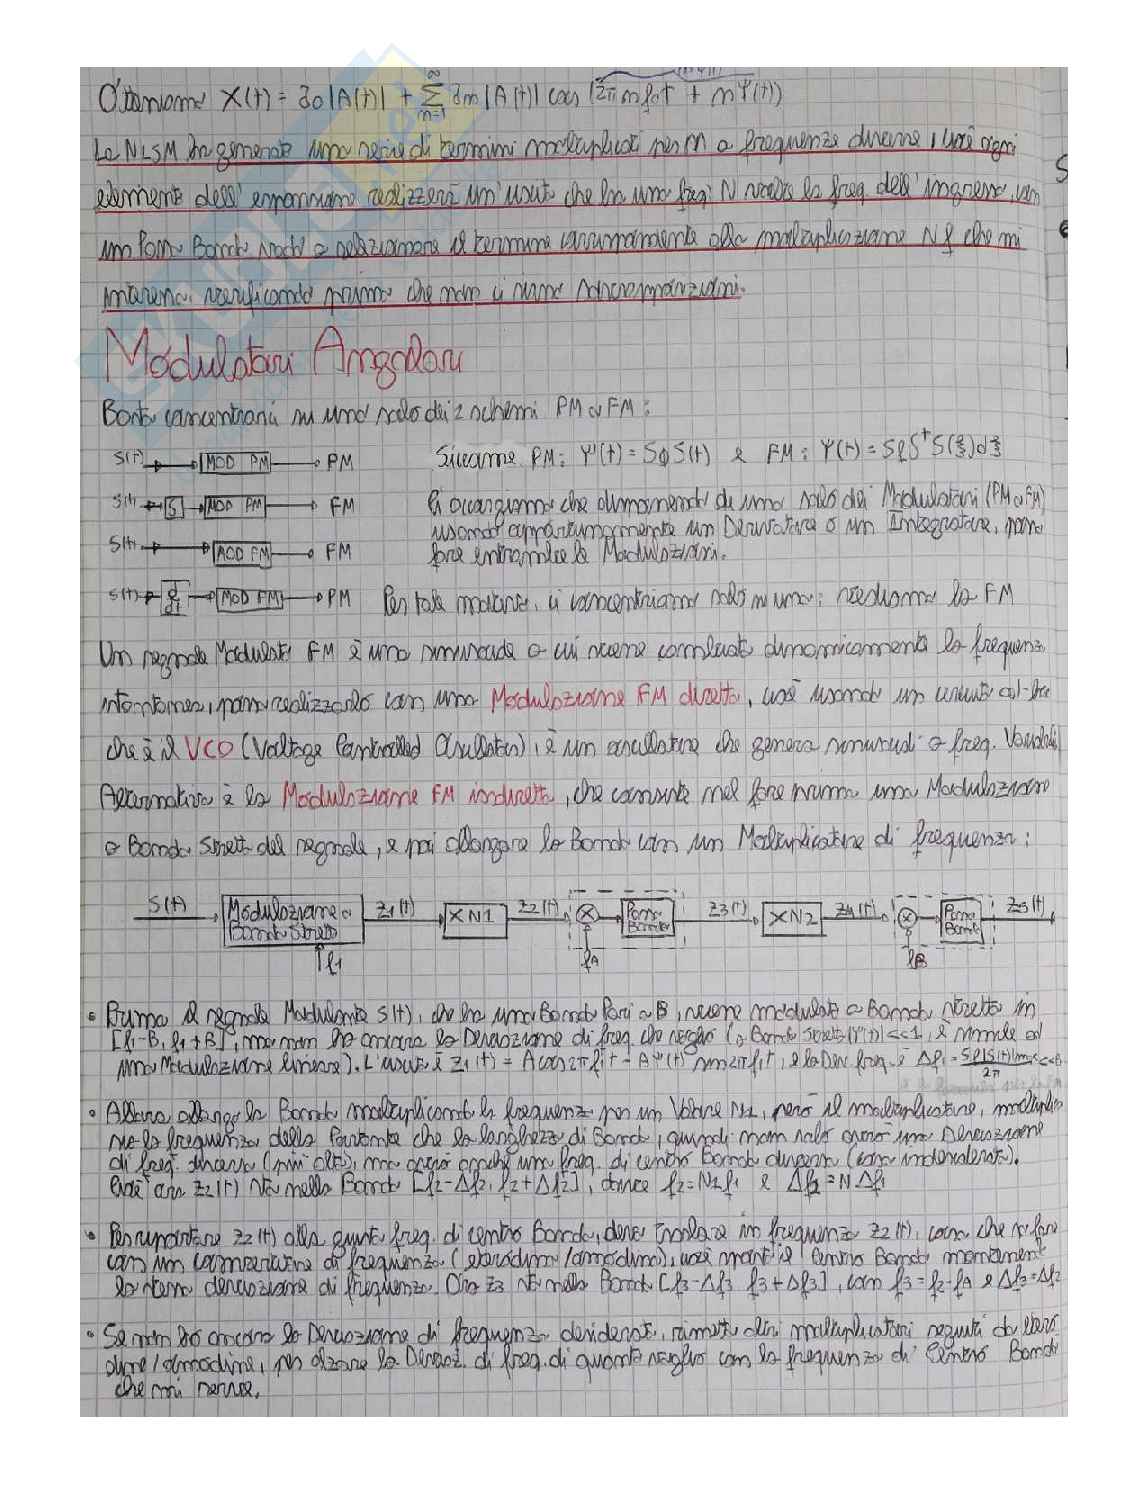 Otteniamo X(t) = a0|A(t)| + Σ am|A(t)| cos(2πm f0t + mΨ(t))
m=1
∞
La NLSM ha generato una serie di termini moltiplicati per m a frequenze diverse, cioè ogni
elemento dell'espansione realizzerà un'uscita che ha una freq. N volte la freq. dell'ingresso, con
un Passa Banda vado a selezionare il termine corrispondente alla moltiplicazione N f che mi
interessa, verificando prima che non ci siano sovrapposizioni.
Modulatori Angolari
Basta concentrarsi su uno solo dei 2 schemi PM o FM:
S(t) MOD PM PM
Siccome PM: Ψ(t) = SΦ S(t) e FM: Ψ(t) = Sf ∫t S(ξ)dξ
S(t) ∫ MOD PM FM
S(t) MOD FM FM
S(t) d/dt MOD FM PM
Ci accorgiamo che disponendo di uno solo dei Modulatori (PM o FM)
usando opportunamente un Derivatore o un Integratore, posso
fare entrambe le Modulazioni.
Per tale motivo, ci concentriamo solo su uno: vediamo la FM
Un segnale Modulato FM è una sinusoide a cui viene cambiata dinamicamente la frequenza
istantanea, posso realizzarlo con una Modulazione FM diretta, cioè usando un circuito ad-hoc
che è il VCO (Voltage Controlled Oscillator), è un oscillatore che genera sinusoidi a freq. Variabili
Alternativa è la Modulazione FM indiretta, che consiste nel fare prima una Modulazione
a Banda Stretta del segnale, e poi allargare la Banda con un Moltiplicatore di frequenza:
S(t) Modulazione a Banda Stretta z1(t) XN1 z2(t) Passa Banda z3(t) XN2 z4(t) Passa Banda z5(t)
f1 fA fB
• Prima il segnale Modulante S(t), che ha una Banda Pari a B, viene modulato a Banda stretta in
[f1-B, f1+B], ma non ho ancora la Deviazione di freq. che voglio (a Banda Stretta |Ψ(t)| <<1, è simile ad
una Modulazione lineare). L'uscita è z1(t) = A cos2πf1t - AΨ(t) sin2πf1t, e la Dev. freq. è Δf1 = Sf|S(t)|max/2π <<B
• Allora allargo la Banda moltiplicando la frequenza per un Valore N1, però il moltiplicatore, moltiplica
sia la frequenza della Portante che la larghezza di Banda, quindi non solo avrò una Deviazione
di freq. diversa (più alta), ma avrò anche una freq. di centro Banda diversa (cosa indesiderata).
Cioè ora z2(t) sta nella Banda [f2-Δf2, f2+Δf2], dove f2=N1f1 e Δf2=NΔf1
• Per riportare z2(t) alla giusta freq. di centro Banda, devo traslare in frequenza z2(t), cosa che si fa
con un convertitore di frequenza (eterodina/omodina), così sposti il Centro Banda mantenendo
la stessa deviazione di frequenza. Ora z3 sta nella Banda [f3-Δf3 f3+Δf3], con f3=f2-fA e Δf3=Δf2
• Se non ho ancora la Deviazione di frequenza desiderata, rimetto altri moltiplicatori seguiti da etero
dine/omodine, per alzare la Deviaz. di freq. di quanto voglio con la frequenza di Centro Banda
che mi serve.